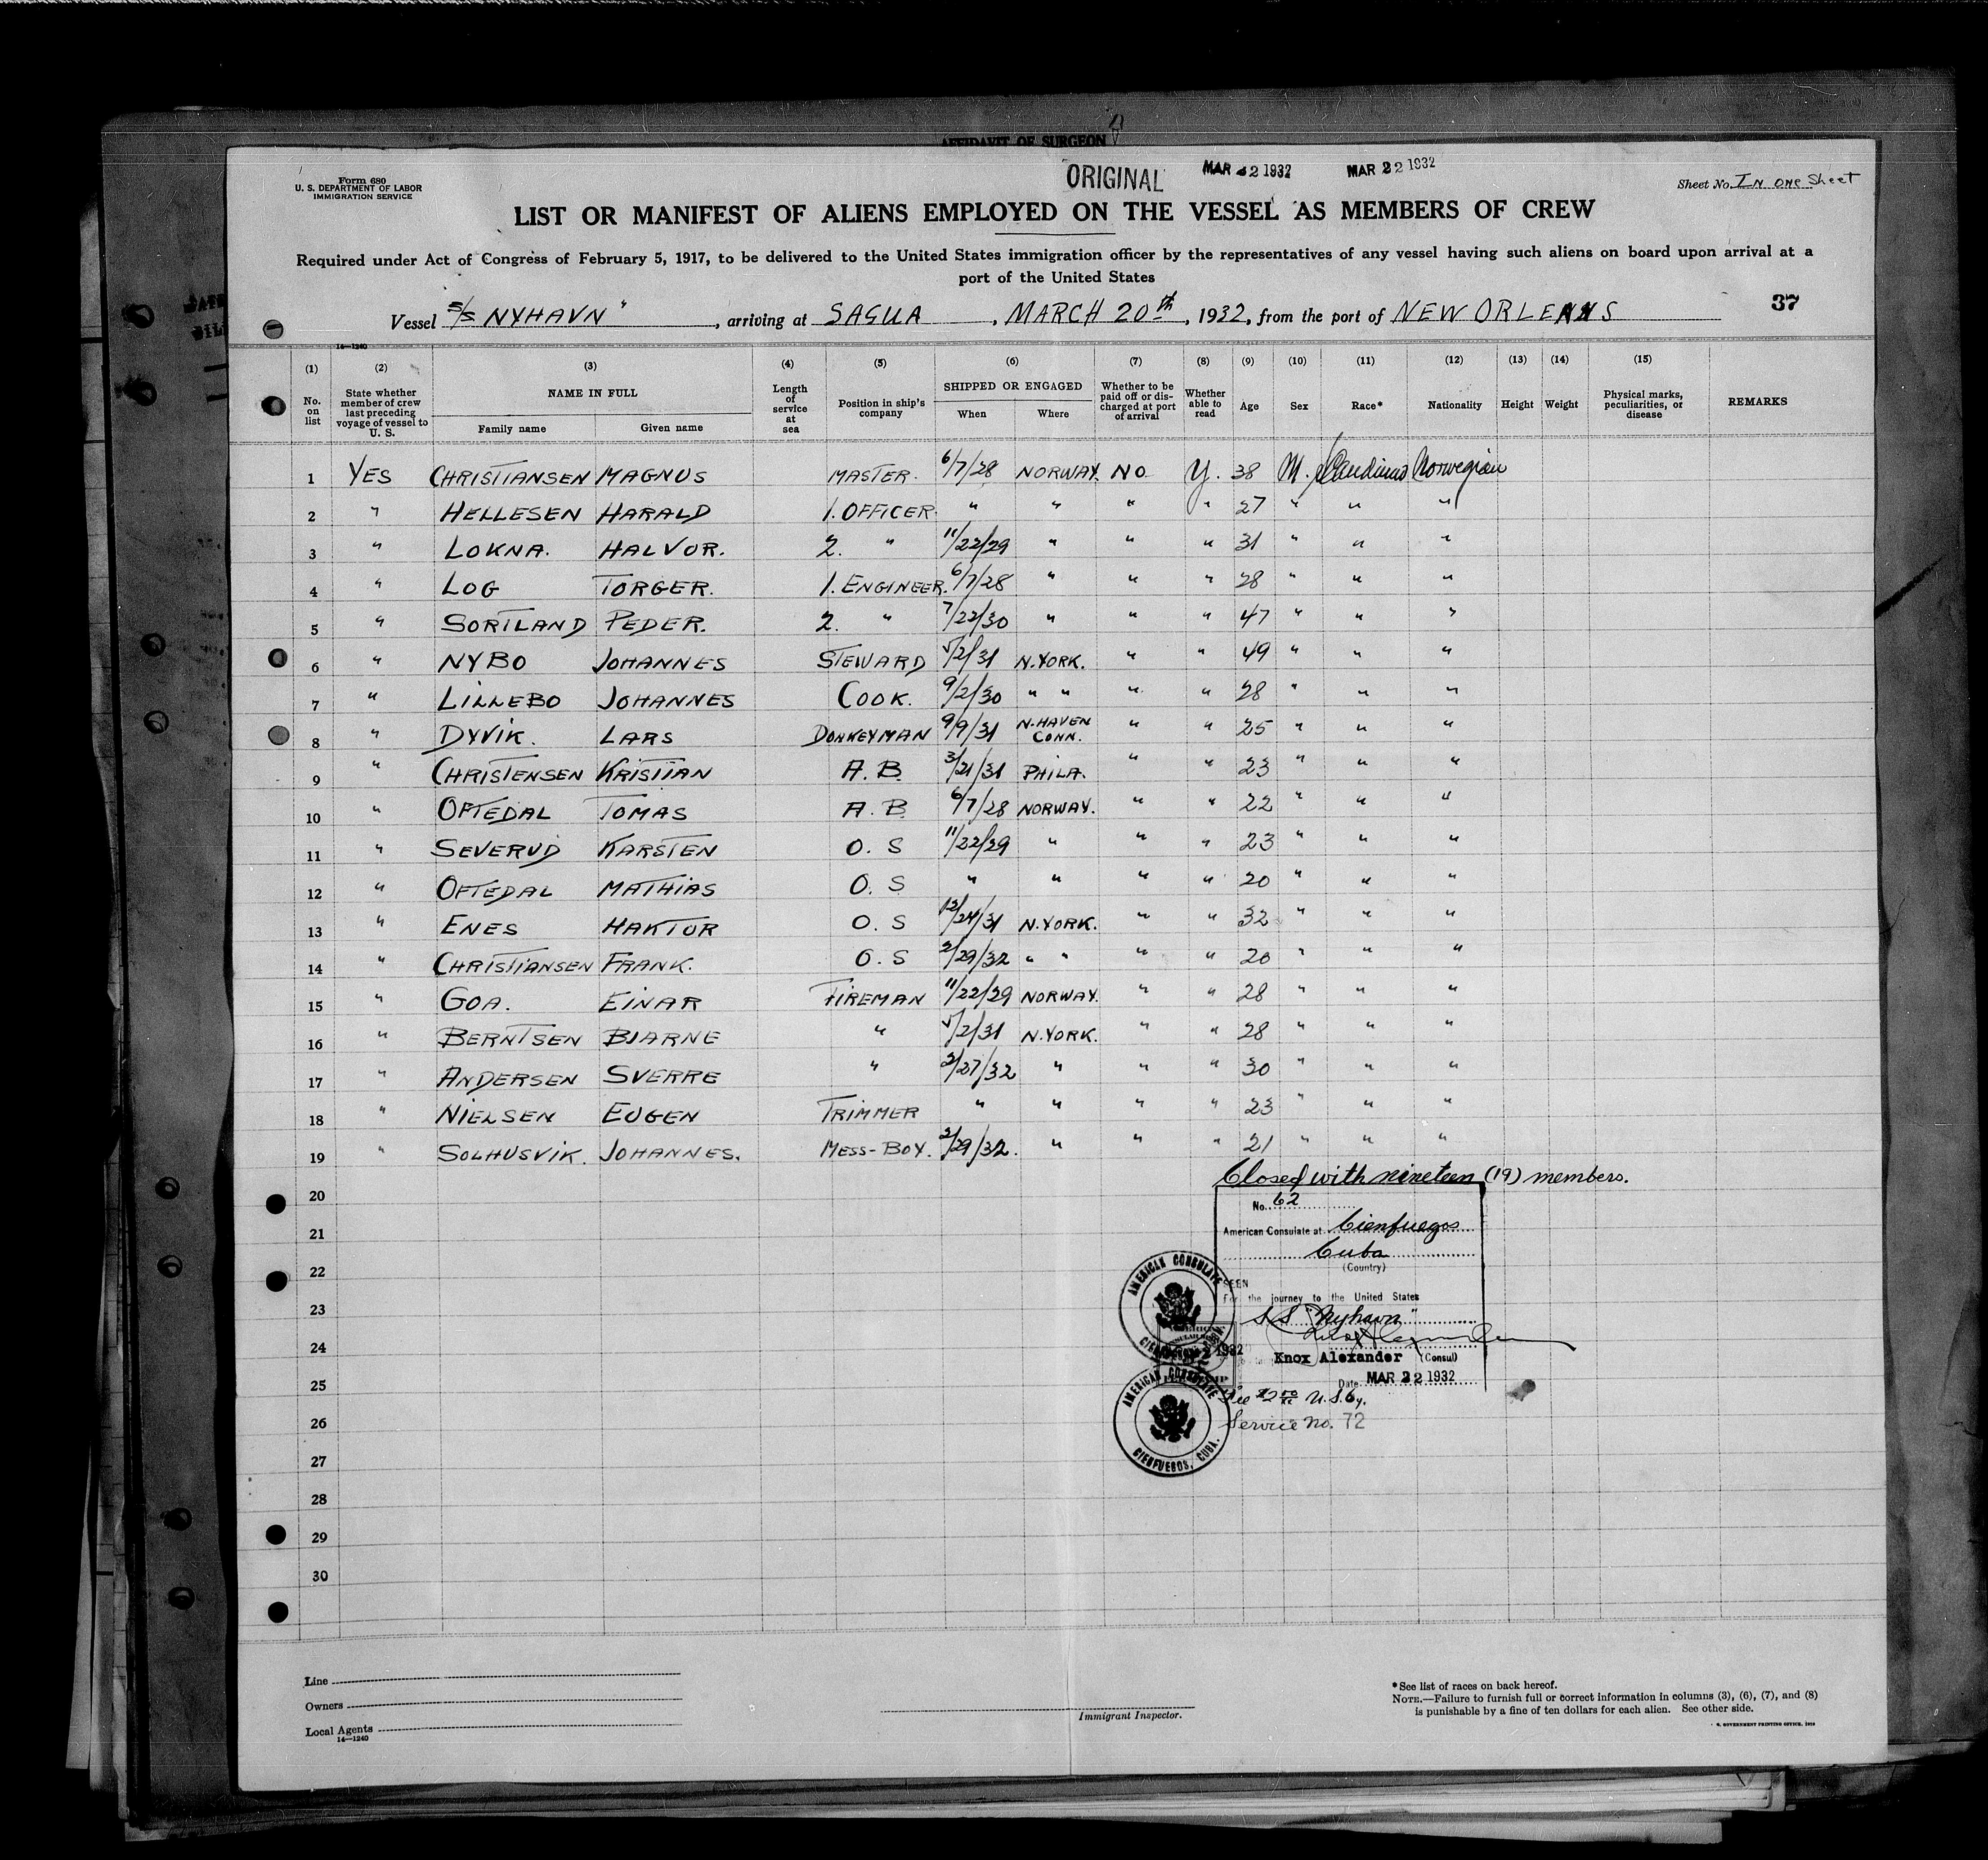 AFFIDAVIT OF SURGEON
Form 680
U. S. DEPARTMENT OF LABOR
IMMIGRATION SERVICE
ORIGINAL
MAR 22 1932
MAR 22 1932
Sheet No. IN ONE Sheet
LIST OR MANIFEST OF ALIENS EMPLOYED ON THE VESSEL AS MEMBERS OF CREW
Required under Act of Congress of February 5, 1917, to be delivered to the United States immigration officer by the representatives of any vessel having such aliens on board upon arrival at a
port of the United States
Vessel S/S NYHAVN", arriving at SAGUA, MARCH 20th, 1932, from the port of NEW ORLEANS
37
14—1240
(1) (2) (3) (4) (5) (6) (7) (8) (9) (10) (11) (12) (13) (14) (15)
No. on list
State whether member of crew last preceding voyage of vessel to U. S.
NAME IN FULL
Family name
Given name
Length of service at sea
Position in ship's company
SHIPPED OR ENGAGED
When
Where
Whether to be paid off or discharged at port of arrival
Whether able to read
Age
Sex
Race*
Nationality
Height
Weight
Physical marks, peculiarities, or disease
REMARKS
1 YES CHRISTIANSEN MAGNUS MASTER. 6/7/28 NORWAY. NO Y. 38 M. Norwegian
2 " HELLESEN HARALD 1. OFFICER. " " " " 27 " " "
3 " LOKNA. HALVOR. 2. " 11/22/29 " " " 31 " " "
4 " LOG TORGER. 1. ENGINEER. 6/7/28 " " " 28 " " "
5 " SORTLAND PEDER. 2. " 7/22/30 " " " 47 " " "
6 " NYBO JOHANNES STEWARD 5/2/31 N.YORK. " " 49 " " "
7 " LILLEBO JOHANNES COOK. 9/2/30 " " " " 28 " " "
8 " DYVIK. LARS DONKEYMAN 9/9/31 N.HAVEN CONN. " " 25 " " "
9 " CHRISTENSEN KRISTIAN A. B. 3/21/31 PHILA. " " 23 " " "
10 " OFTEDAL TOMAS A. B 6/7/28 NORWAY. " " 22 " " "
11 " SEVERUD KARSTEN O. S 11/22/29 " " " 23 " " "
12 " OFTEDAL MATHIAS O. S " " " " 20 " " "
13 " ENES HAKTOR O. S 12/24/31 N.YORK. " " 32 " " "
14 " CHRISTIANSEN FRANK. O. S 2/29/32 " " " " 20 " " "
15 " GOA. EINAR FIREMAN 11/22/29 NORWAY. " " 28 " " "
16 " BERNTSEN BJARNE " 5/2/31 N.YORK. " " 28 " " "
17 " ANDERSEN SVERRE " 2/27/32 " " " 30 " " "
18 " NIELSEN EUGEN TRIMMER " " " " 23 " " "
19 " SOLHUSVIK. JOHANNES. MESS-BOY. 2/29/32. " " " 21 " " "
Closed with nineteen (19) members.
20
21
22
23
24
25
26
27
28
29
30
No. 62
American Consulate at Cienfuegos
Cuba
(Country)
SEEN
For the journey to the United States
S.S. "Nyhavn"
Knox Alexander (Consul)
Date MAR 22 1932
Fee $2 50/xx U.S.Cy.
Service No. 72
AMERICAN CONSULATE
AMERICAN CONSULATE
CIENFUEGOS, CUBA.
Line
Owners
Local Agents
14—1240
Immigrant Inspector.
*See list of races on back hereof.
NOTE.—Failure to furnish full or correct information in columns (3), (6), (7), and (8)
is punishable by a fine of ten dollars for each alien. See other side.